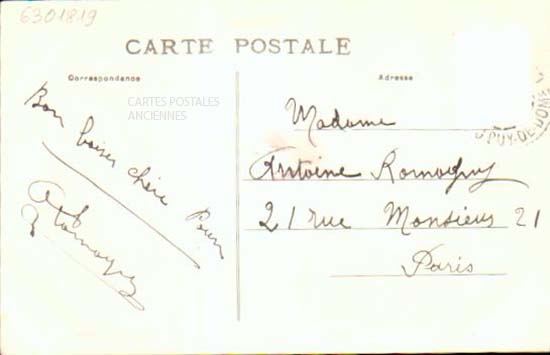 6301819
CARTE POSTALE
Correspondance
Adresse
CARTES POSTALES
ANCIENNES
Bon baiser chère
PUY-DE-DOME
Madame
Antoine Romagny
21 rue Monsieur 21
Paris